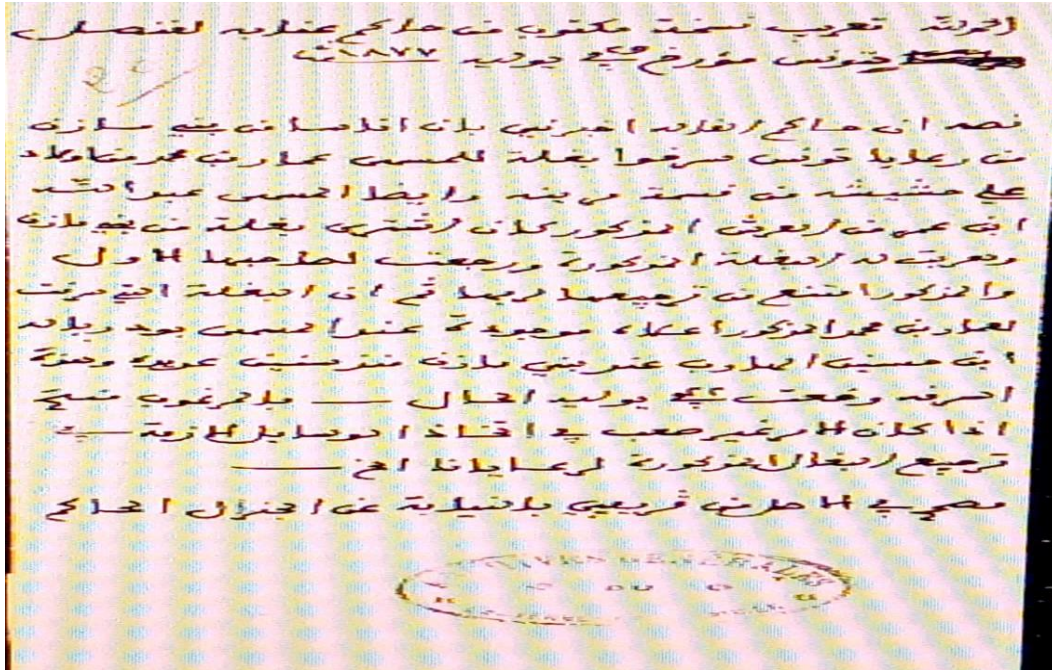 الحمد لله تعريب نسخة مكتوب من حاكم عنابه لقنصل
بتونس مؤرخ في يوليه ١٨٧٧
نصه ان حاكم القاله اخبرني بان اناسا من بني مازن
من رعايا تونس سرقوا بغلة للمسمى عمار بن محمد من اولاد
علي حشيشه من قسمة وايضا المسمى عبد الله
ابن عمه من العرش المذكور كان اشترى بغلة من بني مازن
وتعرفت له البغلة المذكورة ورجعت لصاحبها الاول
والمذكور امتنع من ترجيعها لربها ثم ان البغلة التي سرقت
لعمار بن محمد المذكور اعلاه موجودة عند المسمى
ابن حسين عند بني مازن وهذه
السرقه وقعت في يوليه الحال — فالمرغوب منكم
اذا كان الامر غير صعب في اتخاذ الوسايل الازمة في
ترجيع البغال المذكورة لرعايانا الخ —
مصحح في الاصل من بالنيابة عن الجنرال الحاكم
ARCHIVES GENERALES
DU